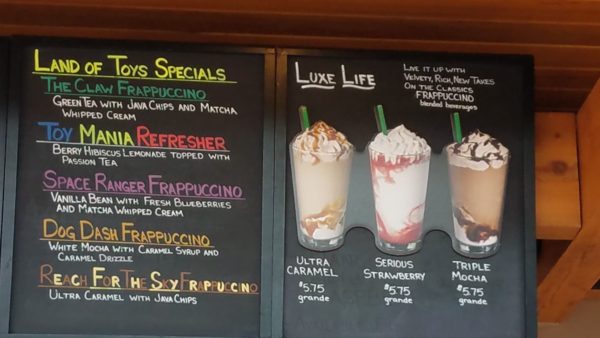 LAND OF TOYS SPECIALS
THE CLAW FRAPPUCCINO
GREEN TEA WITH JAVA CHIPS AND MATCHA
WHIPPED CREAM
TOY MANIA REFRESHER
BERRY HIBISCUS LEMONADE TOPPED WITH
PASSION TEA
SPACE RANGER FRAPPUCCINO
VANILLA BEAN WITH FRESH BLUEBERRIES
AND MATCHA WHIPPED CREAM
DOG DASH FRAPPUCCINO
WHITE MOCHA WITH CARAMEL SYRUP AND
CARAMEL DRIZZLE
REACH FOR THE SKY FRAPPUCCINO
ULTRA CARAMEL WITH JAVA CHIPS
LUXE LIFE
LIVE IT UP WITH
VELVETY, RICH, NEW TAKES
ON THE CLASSICS
FRAPPUCCINO
blended beverages
ULTRA
CARAMEL
$5.75
grande
SERIOUS
STRAWBERRY
$5.75
grande
TRIPLE
MOCHA
$5.75
grande